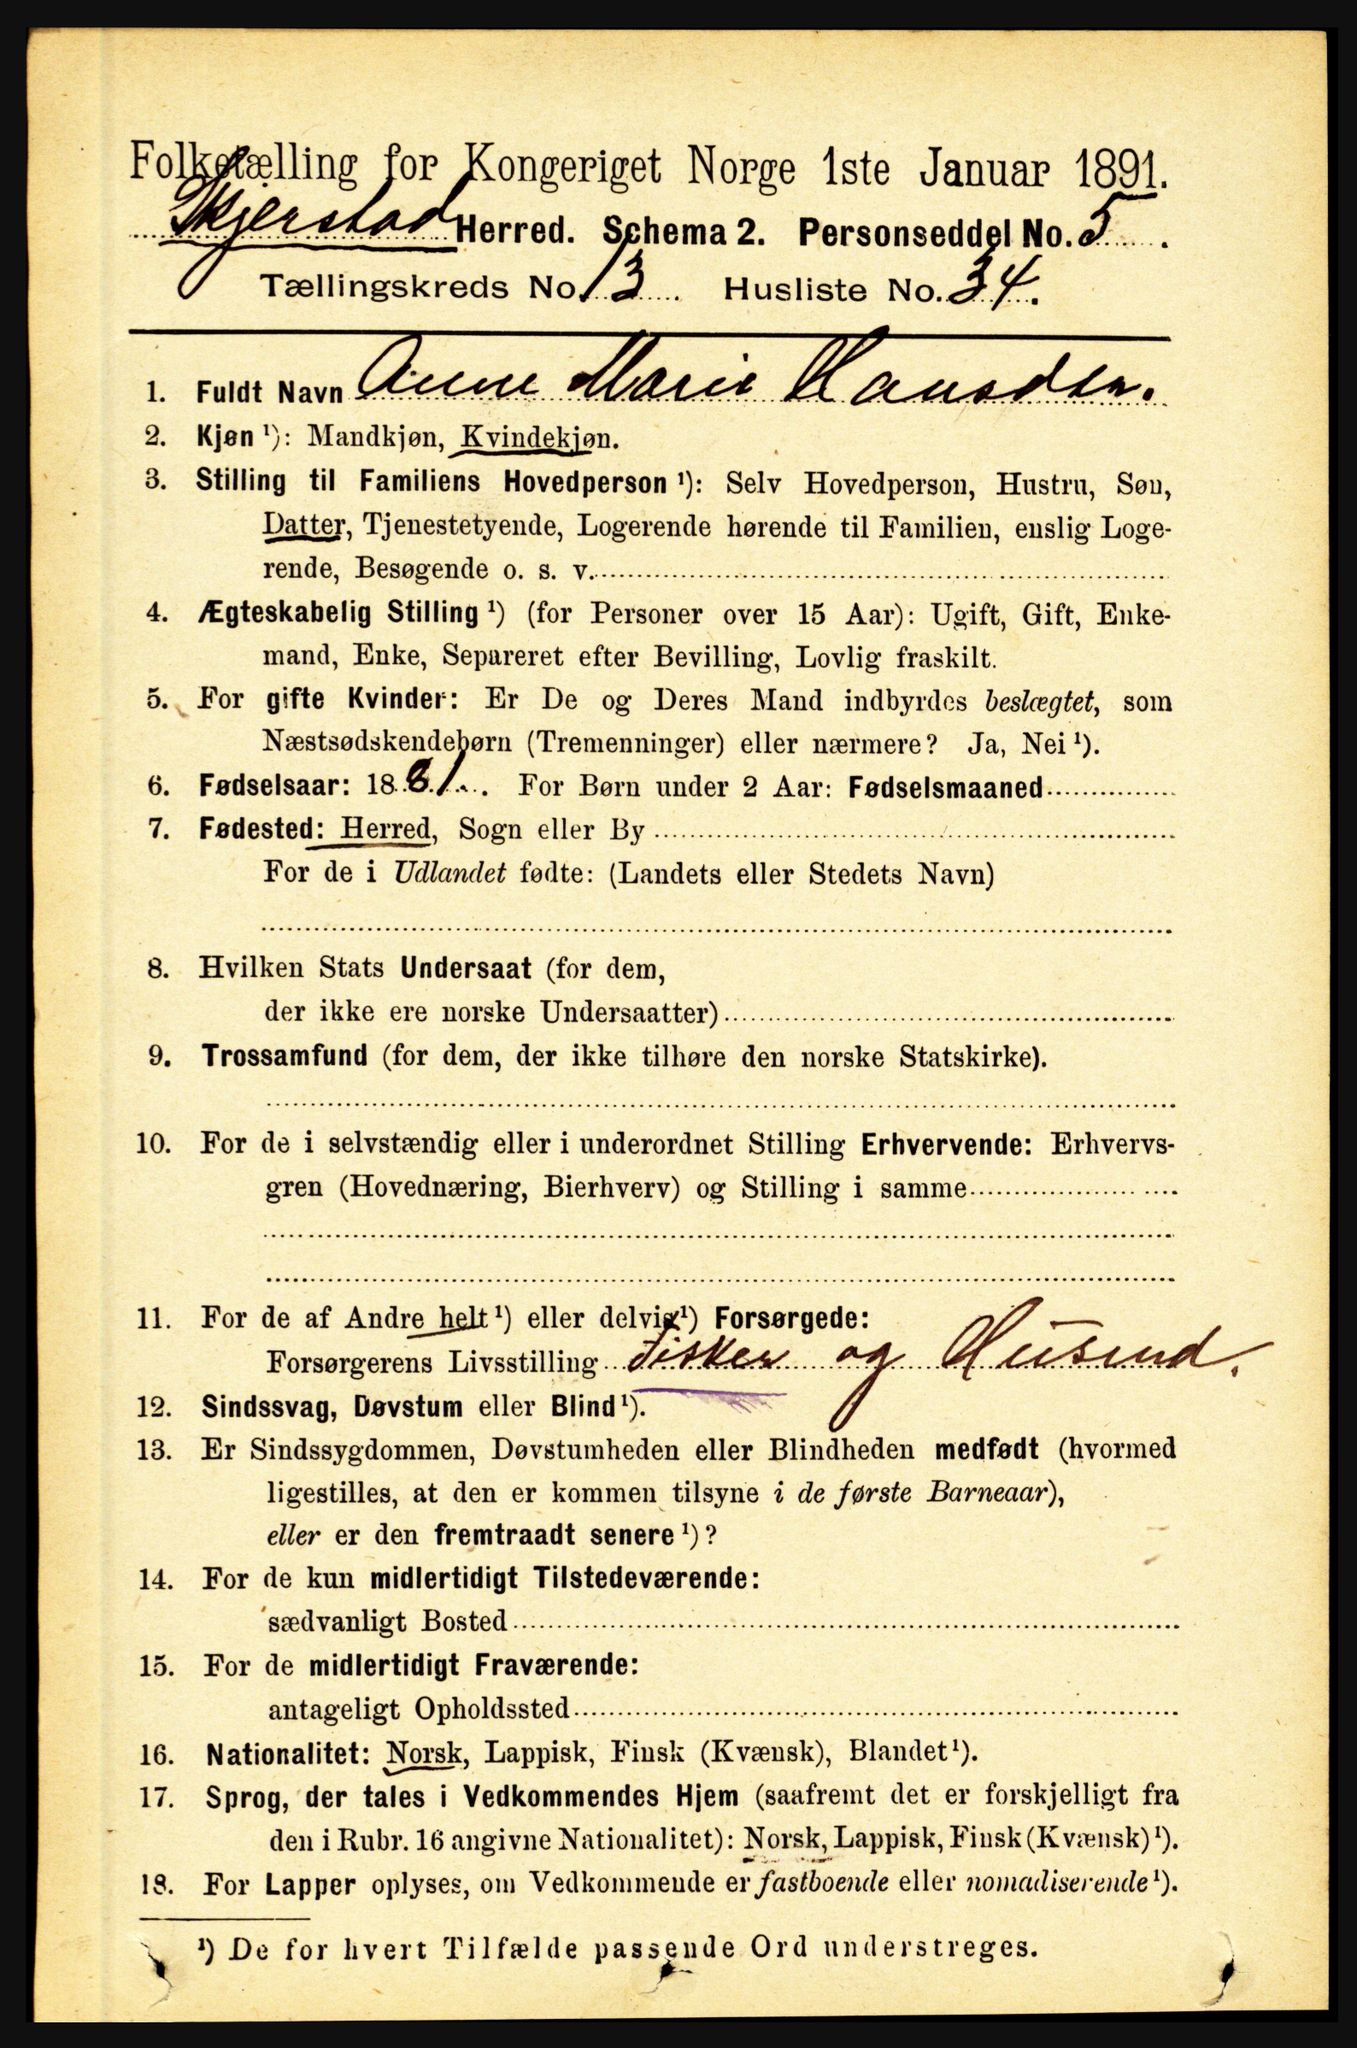 Folketælling for Kongeriget Norge 1ste Januar 1891.
Skjerstad Herred. Schema 2. Personseddel No. 5.
Tællingskreds No. 13. Husliste No. 34.
1. Fuldt Navn Anne Marie Hansdtr.
2. Kjøn ¹): Mandkjøn, Kvindekjøn.
3. Stilling til Familiens Hovedperson ¹): Selv Hovedperson, Hustru, Søn,
Datter, Tjenestetyende, Logerende hørende til Familien, enslig Loge-
rende, Besøgende o. s. v.
4. Ægteskabelig Stilling ¹) (for Personer over 15 Aar): Ugift, Gift, Enke-
mand, Enke, Separeret efter Bevilling, Lovlig fraskilt.
5. For gifte Kvinder: Er De og Deres Mand indbyrdes beslægtet, som
Næstsødskendebørn (Tremenninger) eller nærmere? Ja, Nei ¹).
6. Fødselsaar: 1881. For Børn under 2 Aar: Fødselsmaaned
7. Fødested: Herred, Sogn eller By
For de i Udlandet fødte: (Landets eller Stedets Navn)
8. Hvilken Stats Undersaat (for dem,
der ikke ere norske Undersaatter)
9. Trossamfund (for dem, der ikke tilhøre den norske Statskirke).
10. For de i selvstændig eller i underordnet Stilling Erhvervende: Erhvervs-
gren (Hovednæring, Bierhverv) og Stilling i samme
11. For de af Andre helt ¹) eller delvis ¹) Forsørgede:
Forsørgerens Livsstilling Fisker og Husmd.
12. Sindssvag, Døvstum eller Blind ¹).
13. Er Sindssygdommen, Døvstumheden eller Blindheden medfødt (hvormed
ligestilles, at den er kommen tilsyne i de første Barneaar),
eller er den fremtraadt senere ¹)?
14. For de kun midlertidigt Tilstedeværende:
sædvanligt Bosted
15. For de midlertidigt Fraværende:
antageligt Opholdssted
16. Nationalitet: Norsk, Lappisk, Finsk (Kvænsk), Blandet ¹).
17. Sprog, der tales i Vedkommendes Hjem (saafremt det er forskjelligt fra
den i Rubr. 16 angivne Nationalitet): Norsk, Lappisk, Finsk (Kvænsk) ¹).
18. For Lapper oplyses, om Vedkommende er fastboende eller nomadiserende ¹).
¹) De for hvert Tilfælde passende Ord understreges.